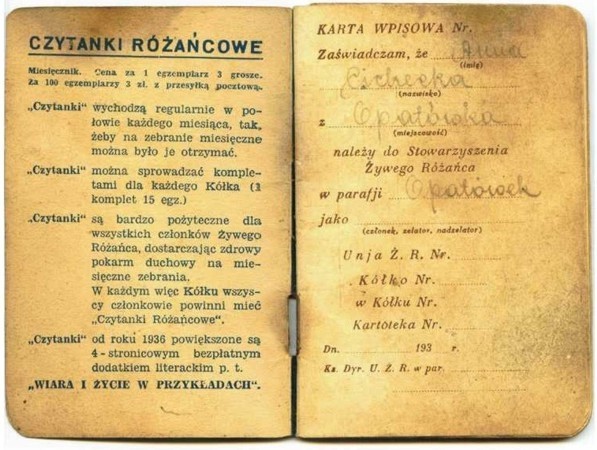 CZYTANKI RÓŻAŃCOWE
Miesięcznik. Cena za 1 egzemplarz 3 grosze.
Za 100 egzemplarzy 3 zł. z przesyłką pocztową.
„Czytanki“ wychodzą regularnie w po-
łowie każdego miesiąca, tak,
żeby na zebranie miesięczne
można było je otrzymać.
„Czytanki“ można sprowadzać komple-
tami dla każdego Kółka (1
komplet 15 egz.)
„Czytanki“ są bardzo pożyteczne dla
wszystkich członków Żywego
Różańca, dostarczając zdrowy
pokarm duchowy na mie-
sięczne zebrania.
W każdym więc Kółku wszys-
cy członkowie powinni mieć
„Czytanki Różańcowe“.
„Czytanki“ od roku 1936 powiększone są
4-stronicowym bezpłatnym
dodatkiem literackim p. t.
„WIARA I ŻYCIE W PRZYKŁADACH“.
KARTA WPISOWA Nr.
Zaświadczam, że Anna
(imię)
Cichecka
(nazwisko)
z Opatówka
(miejscowość)
należy do Stowarzyszenia
Żywego Różańca
w parafji Opatówek
jako
(członek, zelator, nadzelator)
Unja Ż. R. Nr.
Kółko Nr.
w Kółku Nr.
Kartoteka Nr.
Dn. 193 r.
Ks. Dyr. U. Ż. R. w par.